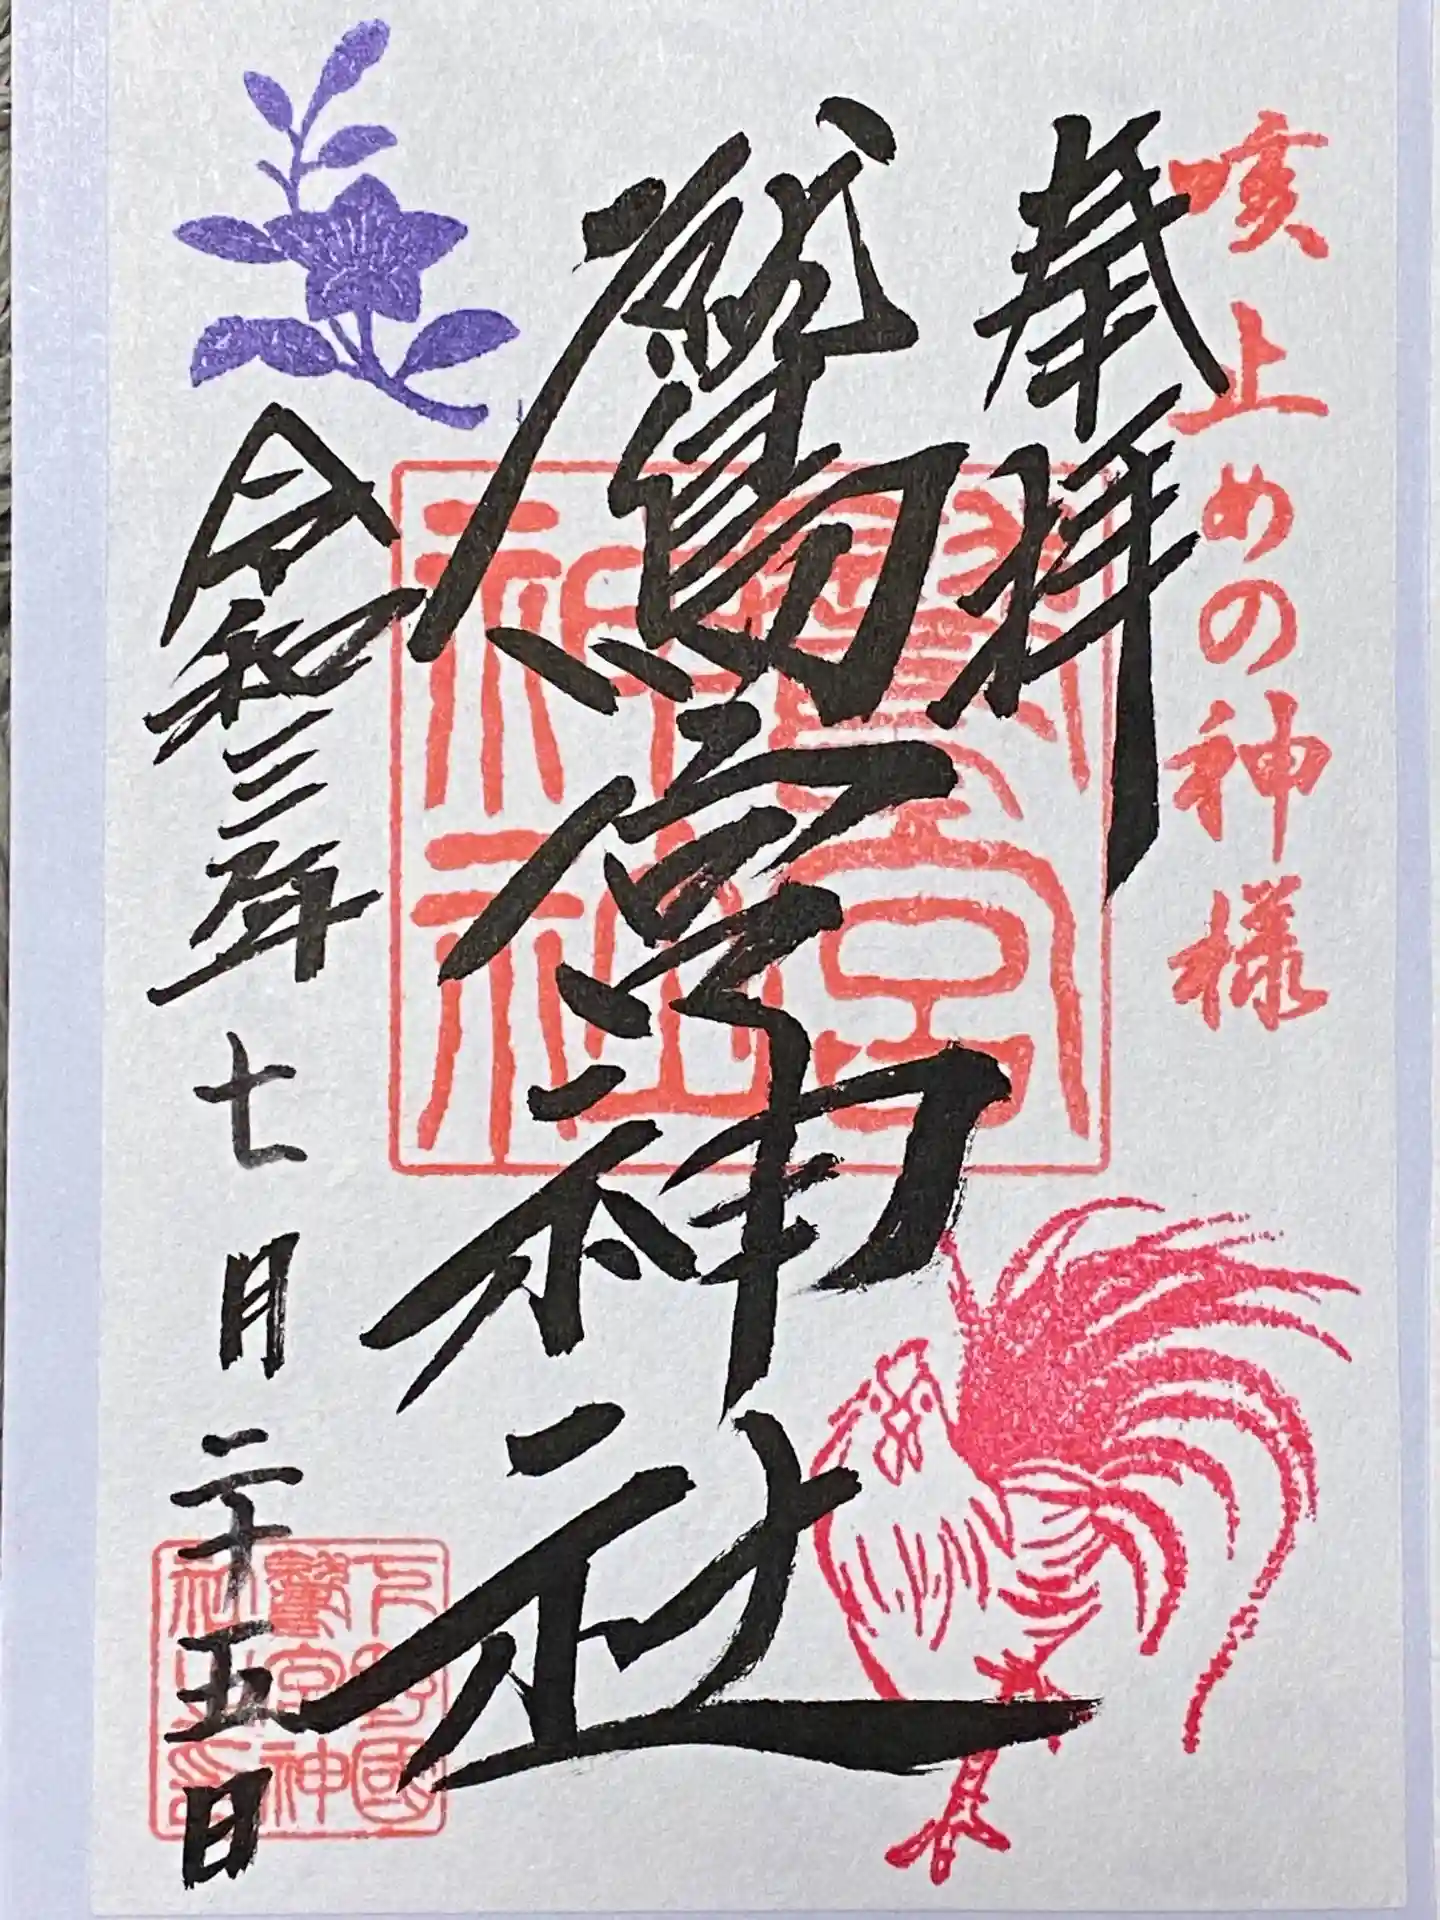 咳止めの神様
奉拝
鷲宮神社
鷲宮
神社
令和三年七月二十五日
下野國
鷲宮神
社之印